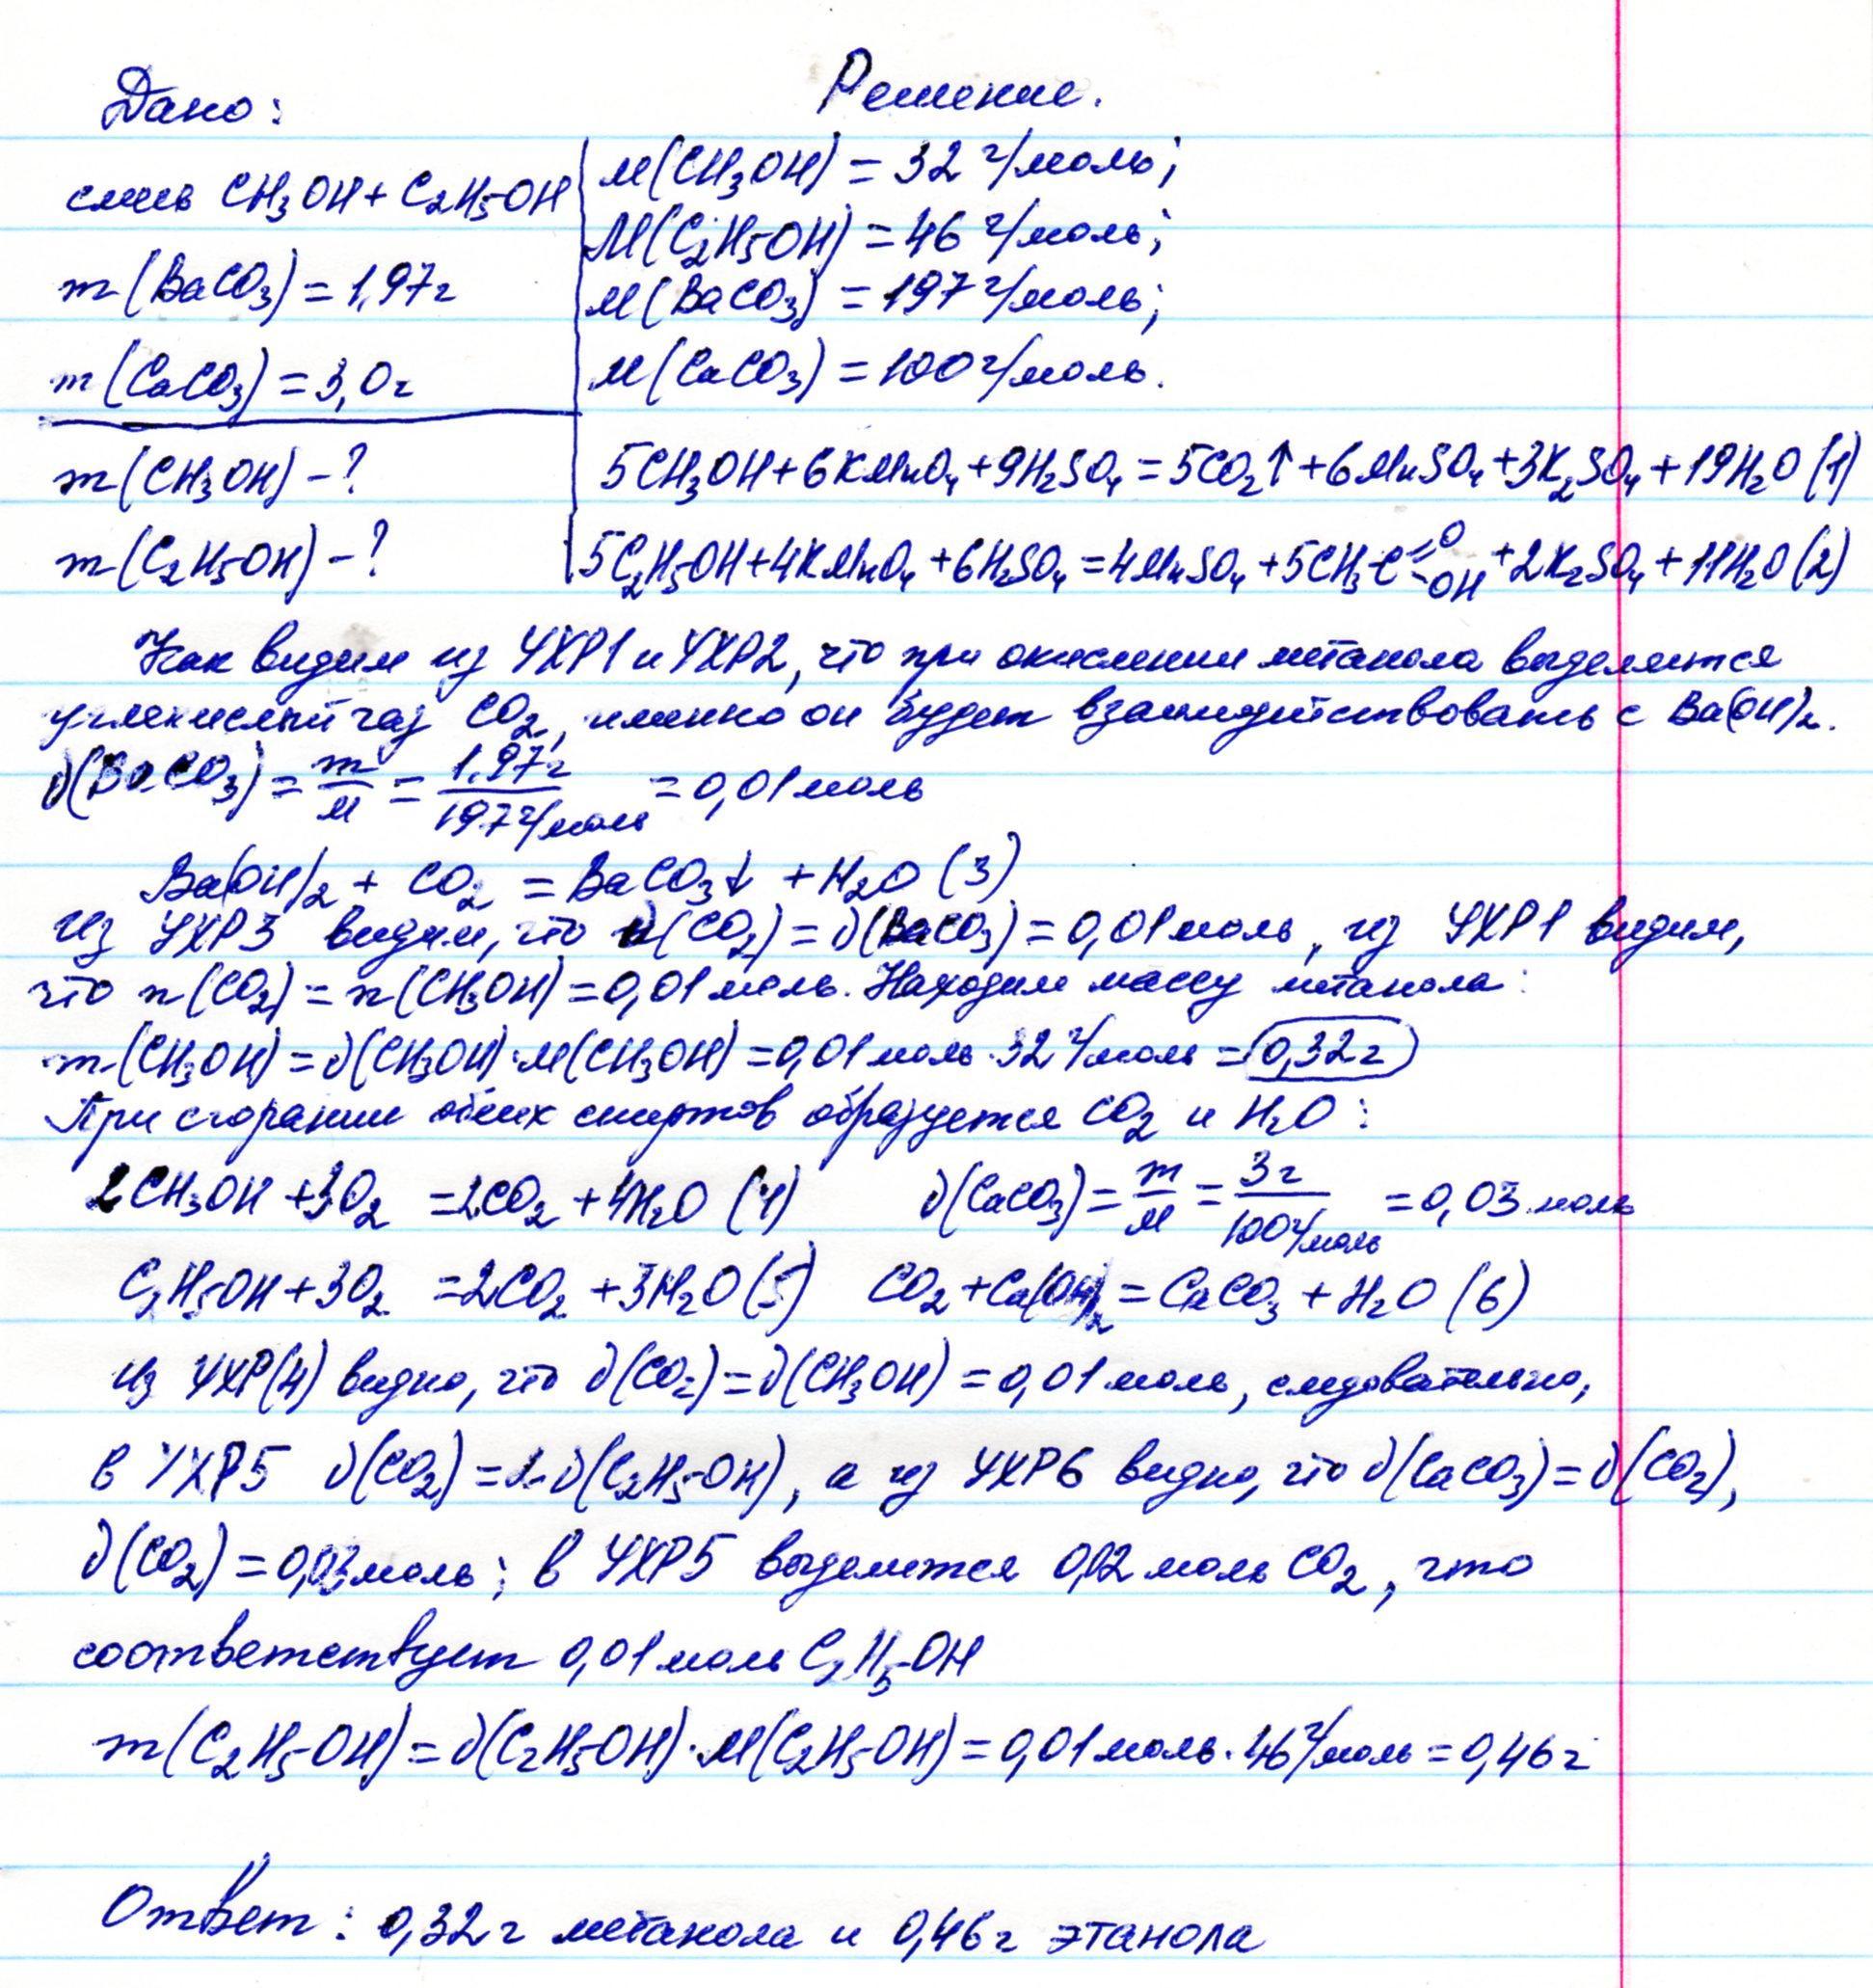 Дано:
Решение.
смесь CH₃OH + C₂H₅OH
m(BaCO₃) = 1,97г
m(CaCO₃) = 3,0г
m(CH₃OH) - ?
m(C₂H₅OH) - ?
M(CH₃OH) = 32 г/моль;
M(C₂H₅OH) = 46 г/моль;
M(BaCO₃) = 197 г/моль;
M(CaCO₃) = 100 г/моль.
5CH₃OH + 6KMnO₄ + 9H₂SO₄ = 5CO₂↑ + 6MnSO₄ + 3K₂SO₄ + 19H₂O (1)
5C₂H₅OH + 4KMnO₄ + 6H₂SO₄ = 4MnSO₄ + 5CH₃-C=O-OH + 2K₂SO₄ + 11H₂O (2)
Как видим из УХР1 и УХР2, что при окислении метанола выделяется
углекислый газ CO₂, именно он будет взаимодействовать с Ba(OH)₂.
ν(BaCO₃) = m/M = 1,97г/197г/моль = 0,01 моль
Ba(OH)₂ + CO₂ = BaCO₃↓ + H₂O (3)
Из УХР3 видим, что n(CO₂) = ν(BaCO₃) = 0,01 моль, из УХР1 видим,
что n(CO₂) = n(CH₃OH) = 0,01 моль. Находим массу метанола:
m(CH₃OH) = ν(CH₃OH)·M(CH₃OH) = 0,01 моль·32 г/моль = 0,32г
При сгорании обеих спиртов образуется CO₂ и H₂O:
2CH₃OH + 3O₂ = 2CO₂ + 4H₂O (4) ν(CaCO₃) = m/M = 3г/100г/моль = 0,03 моль
C₂H₅OH + 3O₂ = 2CO₂ + 3H₂O (5) CO₂ + Ca(OH)₂ = CaCO₃ + H₂O (6)
Из УХР(4) видно, что ν(CO₂) = ν(CH₃OH) = 0,01 моль, следовательно,
в УХР5 ν(CO₂) = 2·ν(C₂H₅OH), а из УХР6 видно, что ν(CaCO₃) = ν(CO₂),
ν(CO₂) = 0,03 моль; в УХР5 выделится 0,02 моль CO₂, что
соответствует 0,01 моль C₂H₅OH
m(C₂H₅OH) = ν(C₂H₅OH)·M(C₂H₅OH) = 0,01 моль·46 г/моль = 0,46г
Ответ: 0,32г метанола и 0,46г этанола